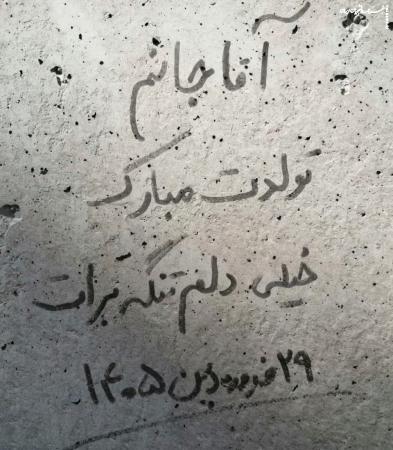 آقا جانم
تولدت مبارک
خیلی دلم تنگه برات
۲۹ فروردین ۱۴۰۵